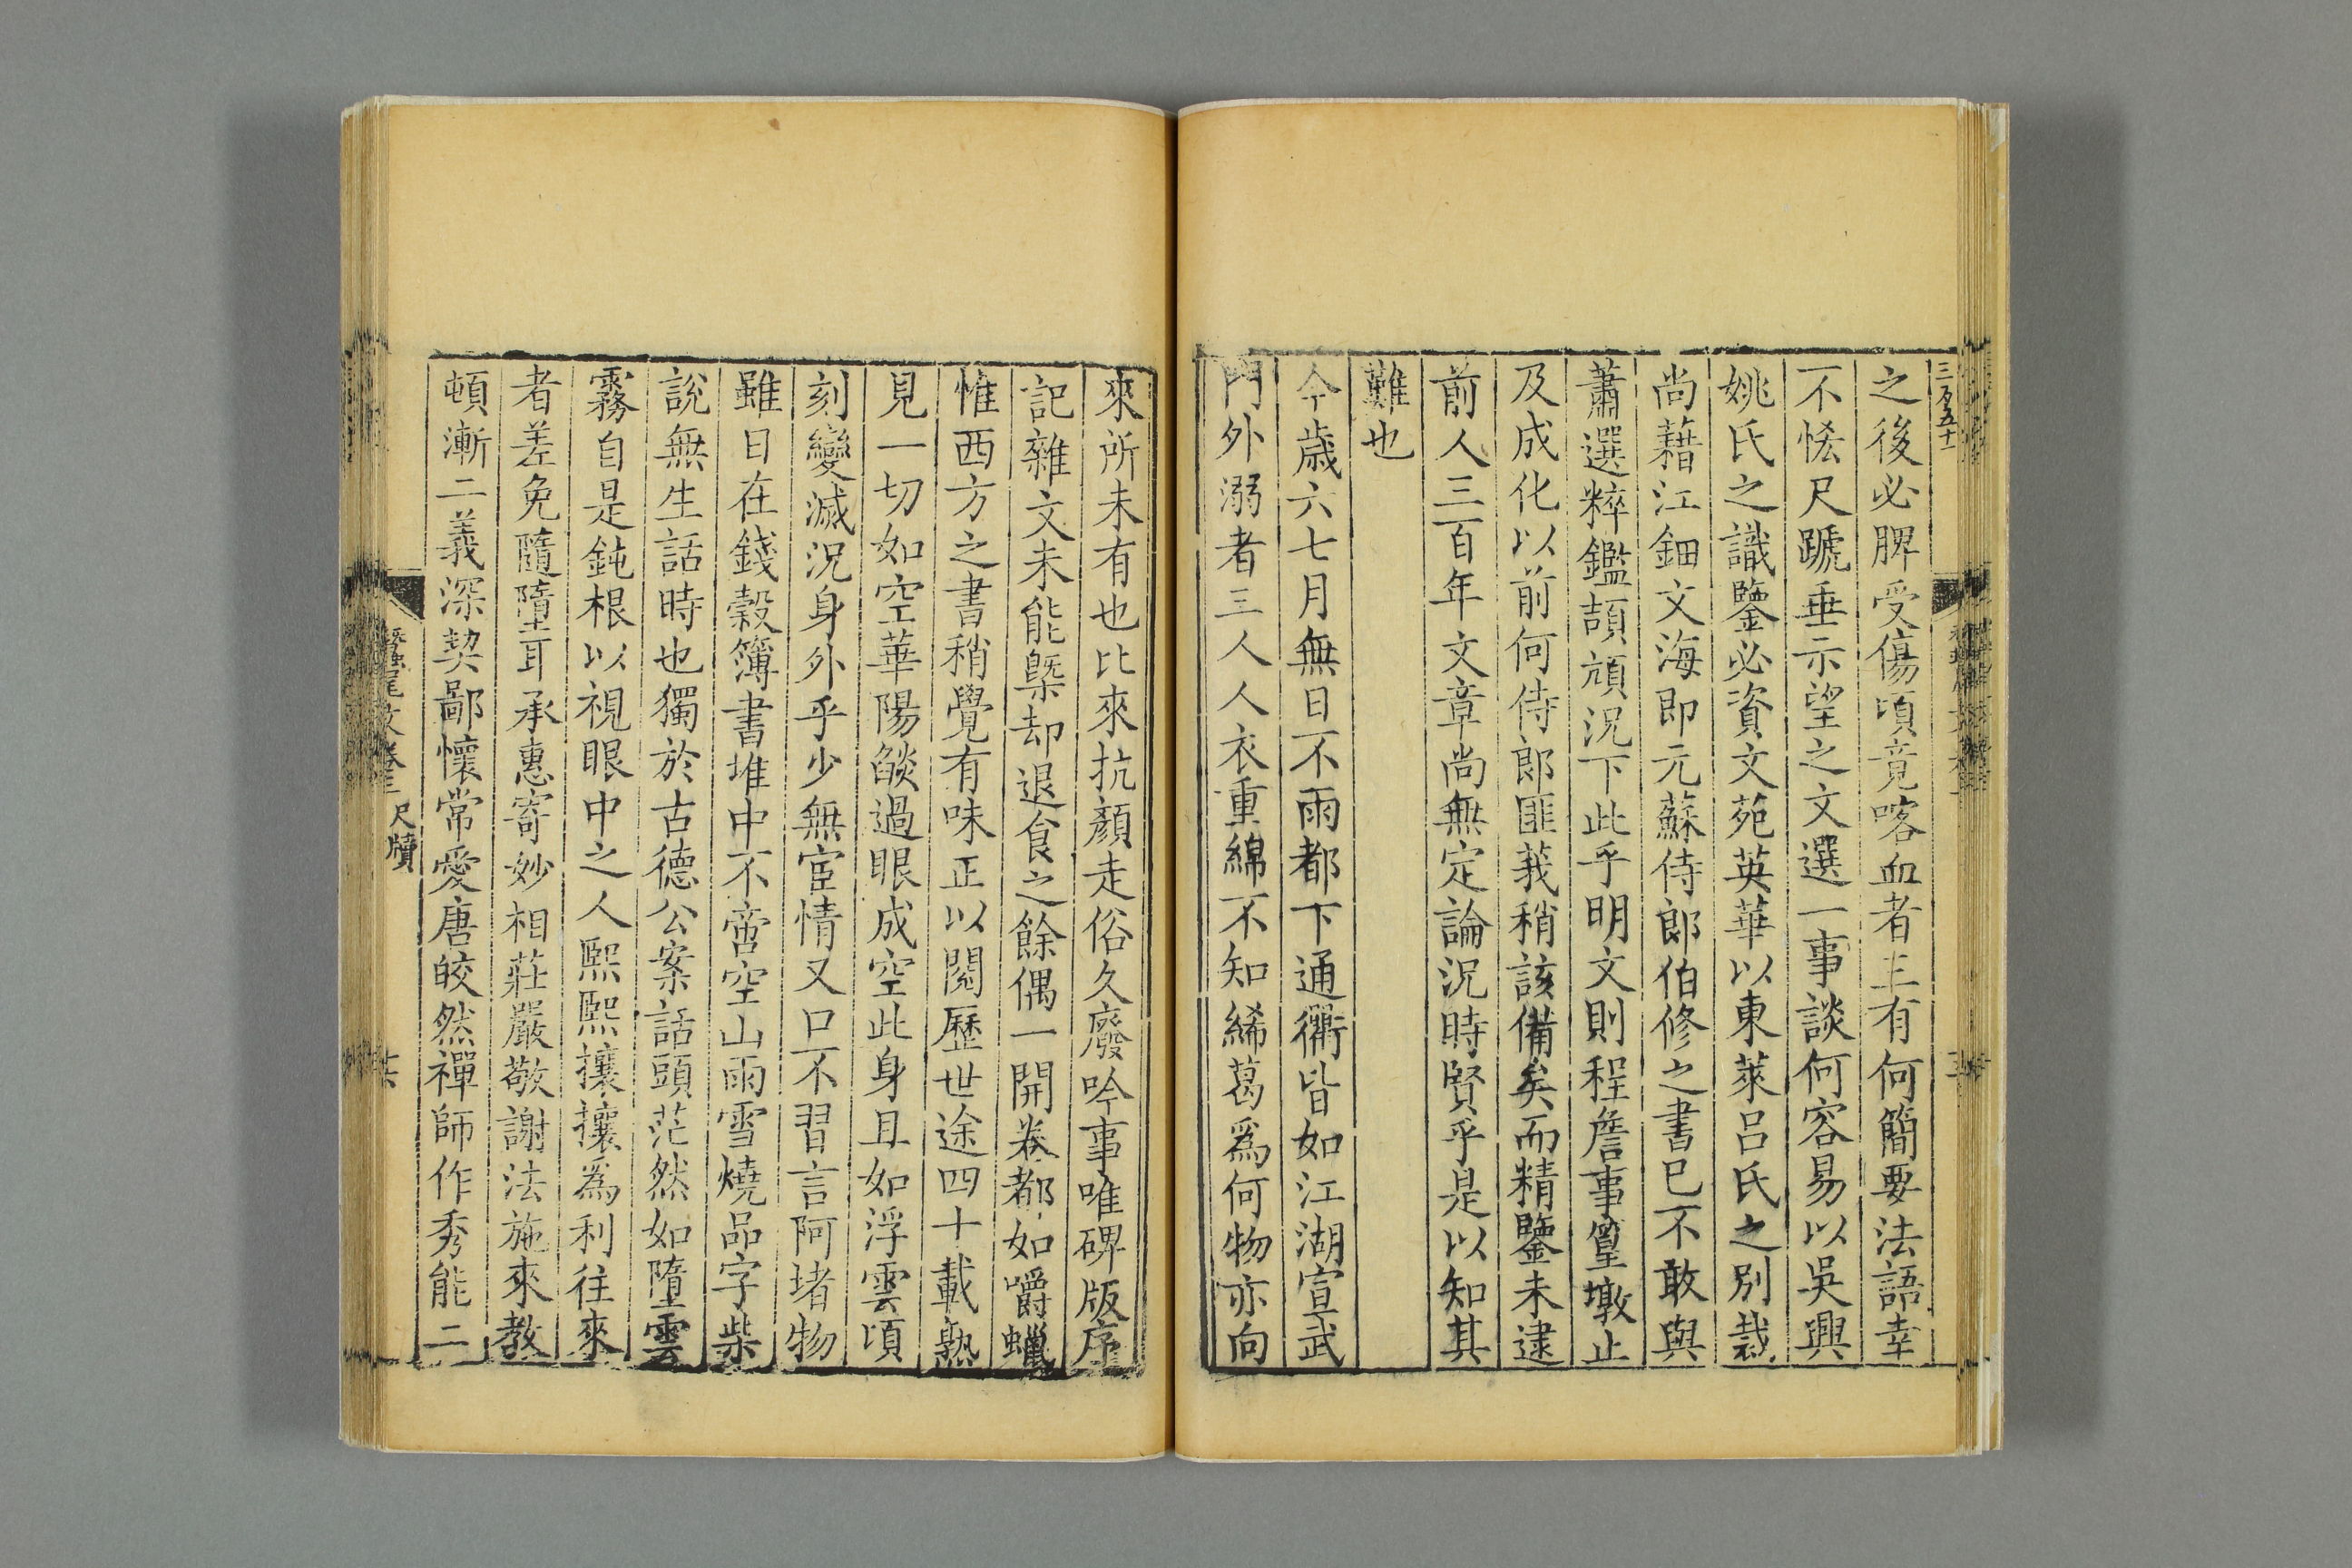 三百五十
之後必脾受傷頃竟喀血者主有何簡要法語幸
不悋尺蹏垂示望之文選一事談何容易以吳興
姚氏之識鑒必資文苑英華以東萊呂氏之別裁
尚藉江鈿文海即元蘇侍郎伯修之書已不敢與
蕭選粹鑑頡頏況下此乎明文則程詹事篁墩止
及成化以前何侍郎匪莪稍該備矣而精鑒未逮
前人三百年文章尚無定論況時賢乎是以知其
難也
今歲六七月無日不雨都下通衢皆如江湖宣武
門外溺者三人人衣重綿不知絺葛爲何物亦向
來所未有也比來抗顏走俗久廢吟事唯碑版序
記雜文未能槩却退食之餘偶一開卷都如嚼蠟
惟西方之書稍覺有味正以閱歷世途四十載熟
見一切如空華陽燄過眼成空此身且如浮雲頃
刻變滅況身外乎少無宦情又口不習言阿堵物
雖日在錢穀簿書堆中不啻空山雨雪燒品字柴
說無生話時也獨於古德公案話頭茫然如墮雲
霧自是鈍根以視眼中之人熙熙攘攘爲利往來
者差免隨墮耳承惠寄妙相莊嚴敬謝法施來教
頓漸二義深契鄙懷常愛唐皎然禪師作秀能二
蠶尾文卷三 尺牘